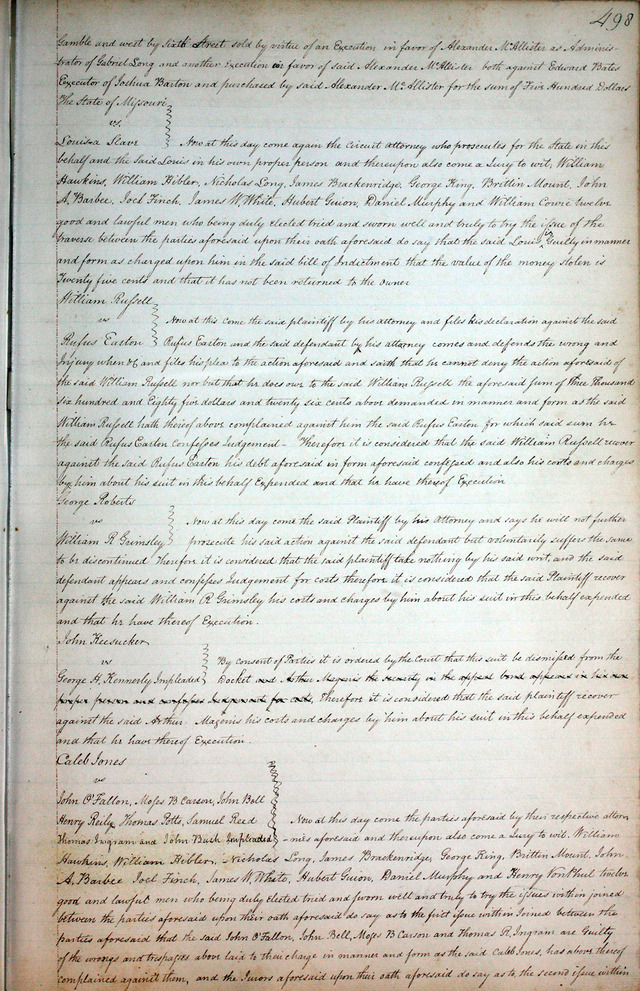 498
Gamble and west by Sixth Street sold by virtue of an Execution in favor of Alexander McAllister as Adminis-
trator of Gabriel Long and another Execution in favor of said Alexander McAllister both against Edward Bates
Executor of Joshua Barton and purchased by said Alexander McAllister for the sum of Five Hundred Dollars
The State of Missouri
vs.
Louis a Slave Now at this day come again the Circuit Attorney who prosecutes for the State in this
behalf and the said Louis in his own proper person and thereupon also come a Jury to wit, William
Hawkins, William Hibler, Nicholas Long, James Brackenridge, George King, Brittin Mount, John
A. Barbee, Joel Finch, James W. White, Hubert Guion, Daniel Murphy and William Cowie twelve
good and lawful men who being duly elected tried and sworn well and truly to try the issue of the
traverse between the parties aforesaid upon their oath aforesaid do say that the said Louis is Guilty in manner
and form as charged upon him in the said bill of Indictment that the value of the money stolen is
Twenty five cents and that it has not been returned to the owner
William Russell
vs Now at this come the said plaintiff by his attorney and files his declaration against the said
Rufus Easton Rufus Easton and the said defendant by his attorney comes and defends the wrong and
Injury when &c and files his plea to the action aforesaid and saith that he cannot deny the action aforesaid of
the said William Russell nor but that he does owe to the said William Russell the aforesaid sum of three Thousand
six hundred and Eighty five dollars and twenty six cents above demanded in manner and form as the said
William Russell hath thereof above complained against him the said Rufus Easton for which said sum he
the said Rufus Easton confesses Judgement - Therefore it is considered that the said William Russell recover
against the said Rufus Easton his debt aforesaid in form aforesaid confessed and also his costs and charges
by him about his suit in this behalf Expended and that he have thereof Execution
George Roberts
vs Now at this day come the said Plaintiff by his Attorney and says he will not further
William R Grimsley prosecute his said action against the said defendant but voluntarily suffers the same
to be discontinued Therefore it is considered that the said plaintiff take nothing by his said writ, and the said
defendant appears and confesses Judgement for costs therefore it is considered that the said Plaintiff recover
against the said William R Grimsley his costs and charges by him about his suit in this behalf expended
and that he have thereof Execution.
John Keesucker
vs By consent of Parties it is ordered by the Court that this suit be dismissed from the
George H. Kennerly Impleaded Docket and Arthur Magenis the security in the appeal bond appeared in his own
proper person and confesses Judgement for costs, Therefore it is considered that the said plaintiff recover
against the said Arthur Magenis his costs and charges by him about his suit in this behalf expended
and that he have thereof Execution.
Caleb Jones
vs
John O'Fallon, Moses B Carson, John Bell
Henry Reily Thomas Potts, Samuel Reed Now at this day come the parties aforesaid by their respective attor-
Thomas Ingram and John Bush Impleaded -nies aforesaid and thereupon also come a Jury to wit. William
Hawkins, William Hibler, Nicholas Long, James Brackenridge, George King, Britten Mount, John
A. Barbee Joel Finch, James W. White, Hubert Guion, Daniel Murphy and Henry Von Phul twelve
good and lawful men who being duly elected tried and sworn well and truly to try the issues within joined
between the parties aforesaid upon their oath aforesaid do say as to the first issue within Joined between the
parties aforesaid that the said John O'Fallon, John Bell, Moses B Carson and Thomas R. Ingram are Guilty
of the wrongs and trespasses above laid to their charge in manner and form as the said Caleb Jones, has above thereof
complained against them, and the Jurors aforesaid upon their oath aforesaid do say as to the second issue within